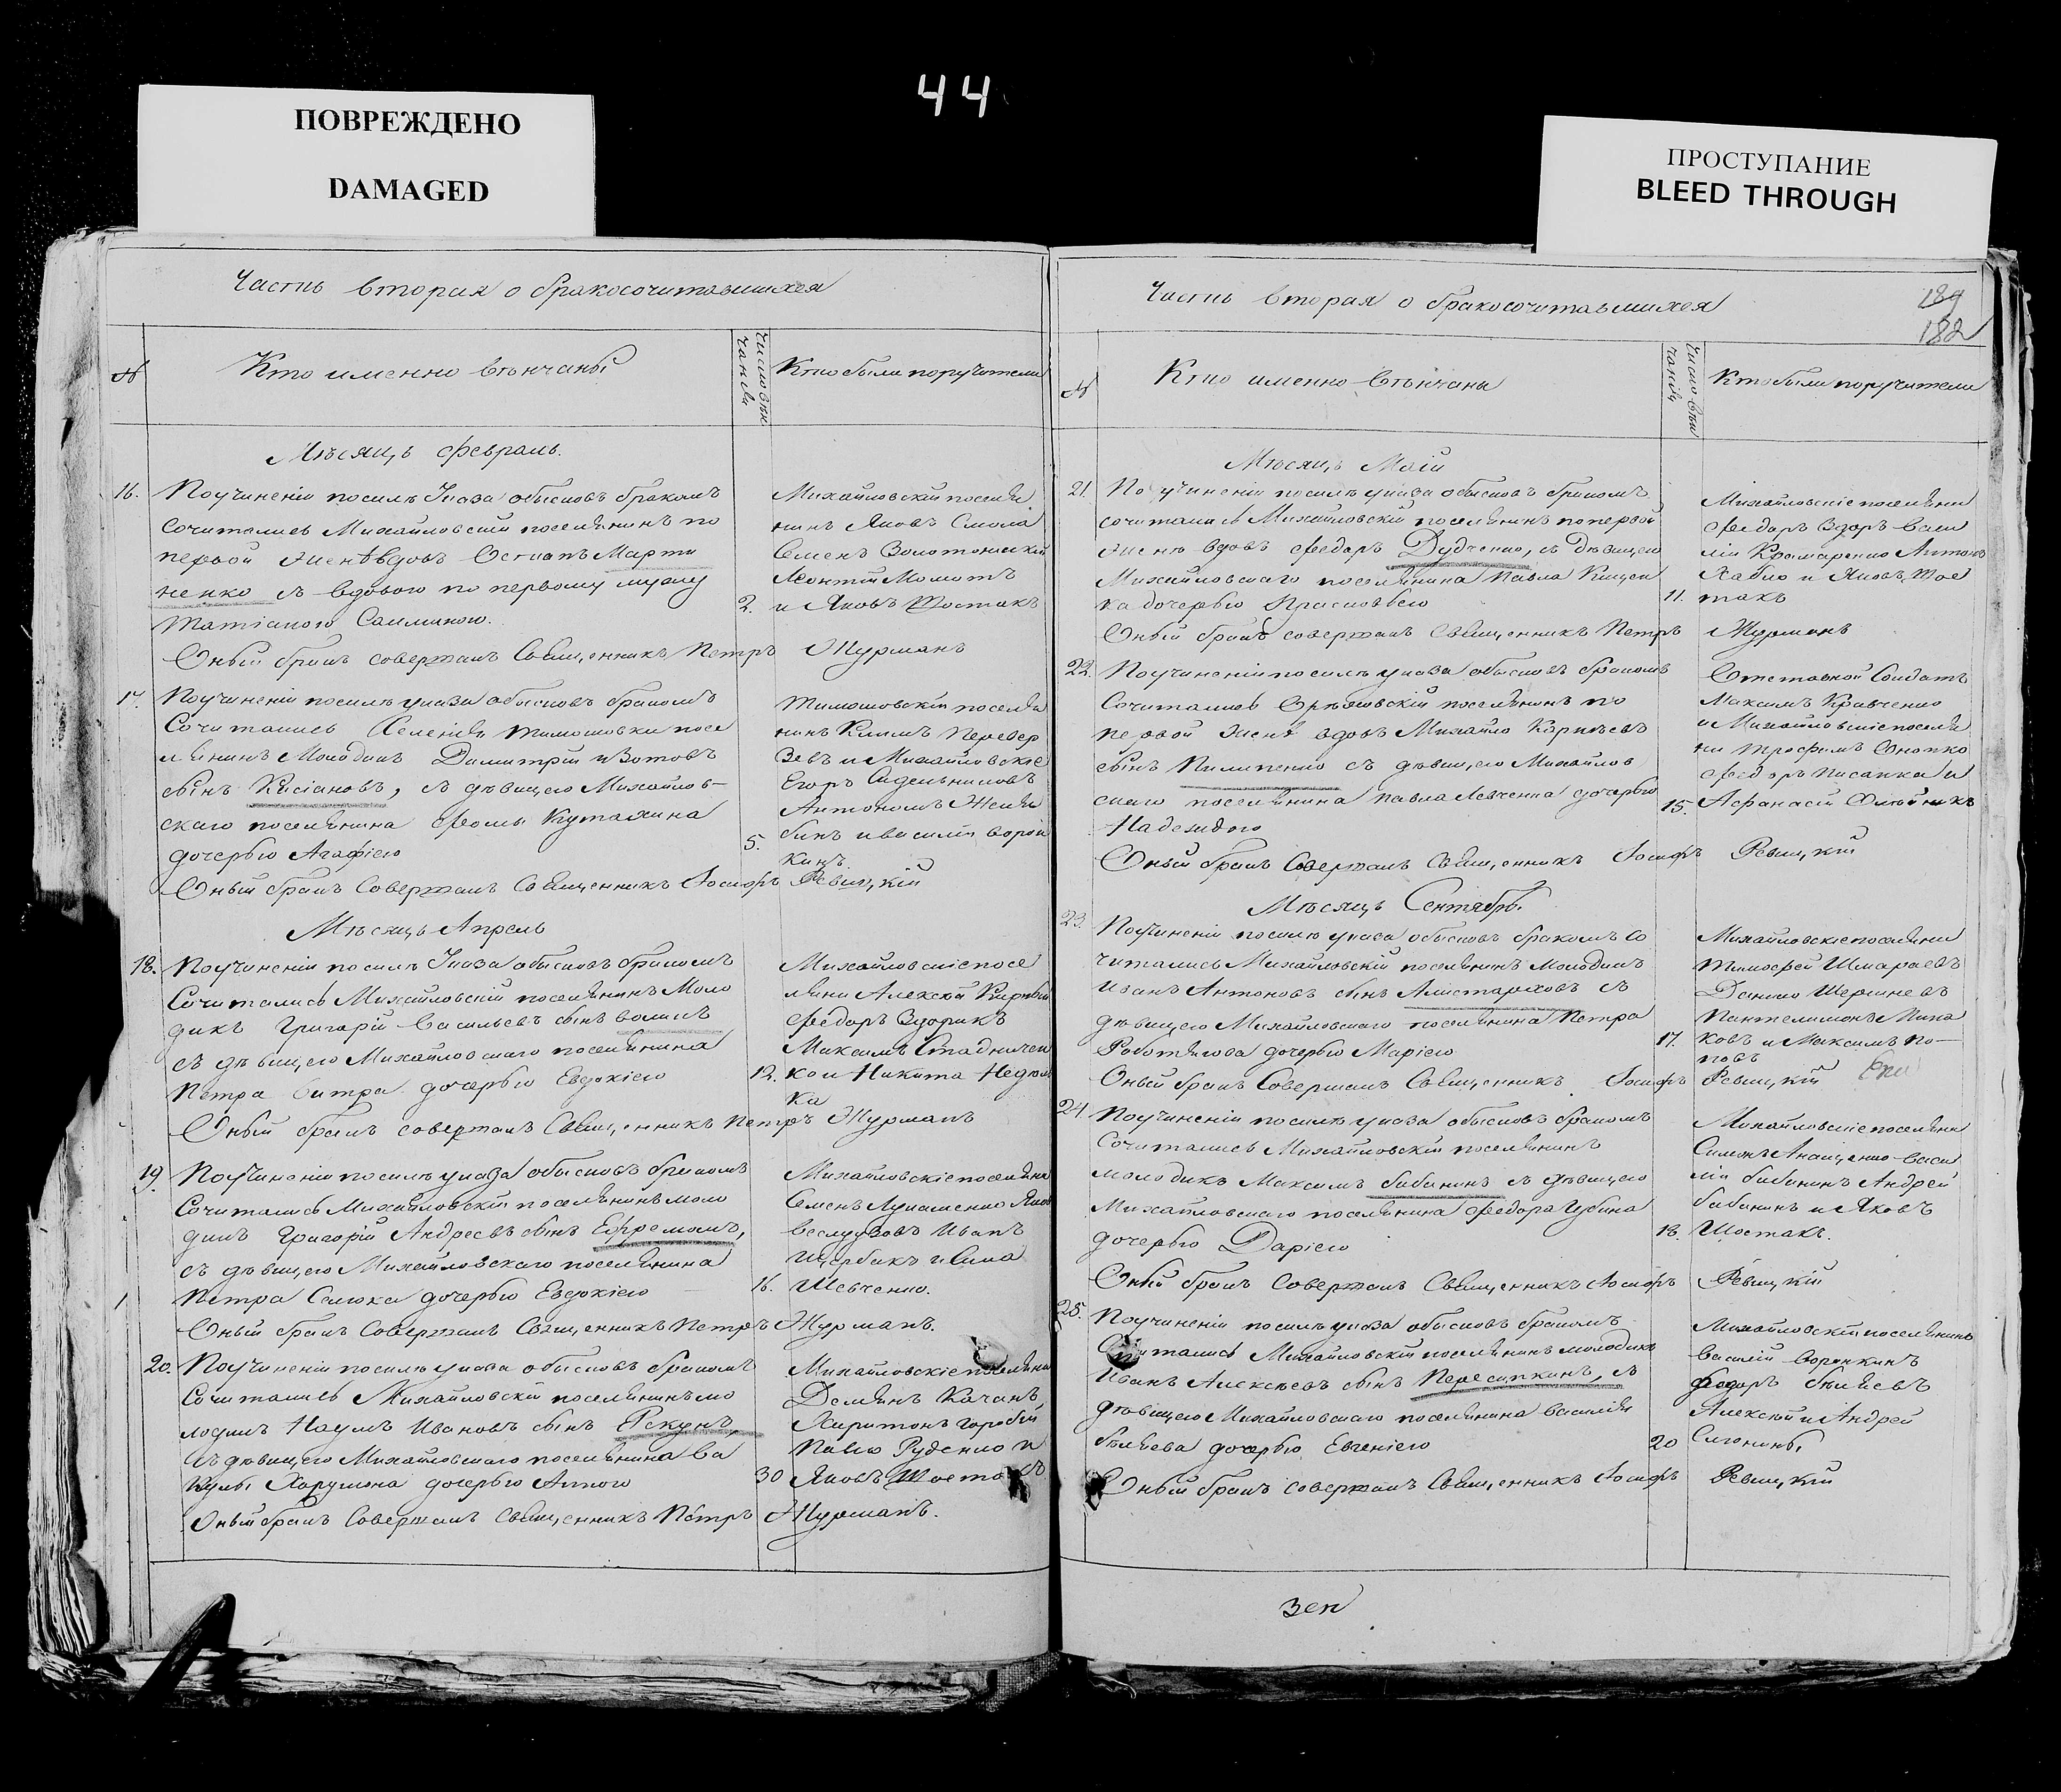 44
ПОВРЕЖДЕНО
DAMAGED
ПРОСТУПАНИЕ
BLEED THROUGH
Часть вторая о бракосочитавшихся
№
Кто именно вѣнчаны
Число вѣн
чанія
Кто были поручители
Мѣсяцъ февраль.
16.
По учиненіи посилѣ Указа обысковъ бракомъ
сочитались Михайловскій поселянинъ по
первой женѣ вдовъ Остапъ Марти
ненко съ вдовою по первому мужу
Татіаною
Оный бракъ совершалъ Священникъ Петръ Журманъ
2.
Михайловскій поселя
нинъ Яковъ Смола
Семенъ Золотонискій
Леонтій Момотъ
и Яковъ Шостакъ
17.
По учиненіи посилѣ указа обысковъ бракомъ
Сочитались Селенія Тимошовки посе
лянинъ Молодикъ Димитрій Изотовъ
сынъ Касіановъ, съ дѣвицею Михайлов-
скаго поселянина Фомы Кутахина
дочерью Агафіею
Оный бракъ Совершалъ Священникъ Іосифъ Ревицкій
5.
Тимошовскій поселя
нинъ Климъ Перевер
зевъ и Михайловскіе
Егоръ Сидельниковъ
Антономъ Жиля
бинъ и Василій Ворон
кинъ
Мѣсяцъ Апрель
18.
По учиненіи посилѣ Указа обысковъ бракомъ
Сочитались Михайловскій поселянинъ Моло
дикъ Григорій Васильевъ сынъ Воликъ
съ дѣвицею Михайловскаго поселянина
Петра дочерью Евдокіею
Оный бракъ совершалъ Священникъ Петръ Журманъ
12.
Михайловскіе посе
ляни Алексѣй Кирный
Федоръ Здорикъ
Максимъ Стадничен
ко и Никита Недѣль
ка
19.
По учиненіи посилѣ указа обысковъ бракомъ
Сочитались Михайловскій поселянинъ моло
дикъ Григорій Андреевъ сынъ Ефремовъ,
съ дѣвицею Михайловскаго поселянина
Петра Сенюка дочерью Евдокіею
Оный бракъ Совершалъ Священникъ Петръ Журманъ.
16.
Михайловскіе поселяни
Семенъ Лукашенко Яков
Веслугзовъ Иванъ
Щербакъ и Сила
Шевченко.
20.
По учиненіи посилѣ указа обысковъ бракомъ
Сочитались Михайловскій поселянинъ мо
лодикъ Наумъ Ивановъ сынъ Рекунъ
съ дѣвицею Михайловскаго поселянина Ва
кулы Харушона дочерью Анною
Оный бракъ Совершалъ Священникъ Петръ Журманъ.
30
Михайловскіе поселяни
Демянъ Качанъ
Харитонъ Горобій
Павло Руденко и
Яковъ Шостакъ
Часть вторая о бракосочитавшихся
189
182
№
Кто именно вѣнчаны
Число вѣн
чанія
Кто были поручители
Мѣсяцъ Маій
21.
По учиненіи посилѣ указа обысковъ бракомъ
сочитались Михайловскій поселянинъ по первой
женѣ вдовъ Федоръ Дудченко, съ дѣвицею
Михайловскаго поселянина Павла Кицен
ка дочерью Прасковьею
Оный бракъ совершалъ Священникъ Петръ Журманъ
11.
Михайловскіе поселяни
Федоръ Здоръ Васи
лій Крамаренко Антонъ
Хабло и Яковъ Шос
такъ
22.
По учиненіи посилѣ указа обысковъ бракомъ
Сочитались Орѣховскій поселянинъ по
первой женѣ вдовъ Михайло Карнѣевъ
сынъ Пилипенко съ дѣвицею Михайлов
скаго поселянина Павла Левченка дочерью
Надеждою
Оный бракъ Совершалъ Священникъ Іосифъ Ревицкій
15.
Отставной Солдатъ
Максимъ Кравченко
и Михайловскіе поселя
ни Трофимъ Снопко
Федоръ Писанка и
Афанасій Олѣйникъ
Мѣсяцъ Сентябрь.
23.
По учиненіи посилѣ указа обысковъ бракомъ со
читались Михайловскій поселянинъ Молодикъ
Иванъ Антоновъ сынъ Алистарховъ съ
дѣвицею Михайловскаго поселянина Петра
Роботягова дочерью Маріею
Оный бракъ Совершалъ Священникъ Іосифъ Ревицкій
17.
Михайловскіе поселяни
Тимофей Шмараевъ
Данило Шершневъ
Пантелимонъ Мина
ковъ и Максимъ По-
повъ
24.
По учиненіи посилѣ указа обысковъ бракомъ
Сочитались Михайловскій поселянинъ
молодикъ Максимъ Бабанинъ съ дѣвицею
Михайловскаго поселянина Федора Губина
дочерью Даріею
Оный бракъ Совершалъ Священникъ Іосифъ Ревицкій
18.
Михайловскіе поселяни
Симонъ Анищенко Васи
лій Бабанинъ Андрей
Бабанинъ и Яковъ
Шостакъ.
25.
По учиненіи посилѣ указа обысковъ бракомъ
Сочитались Михайловскій поселянинъ молодикъ
Иванъ Алексѣевъ сынъ Пересипкинъ, съ
дѣвицею Михайловскаго поселянина Василія
Бѣляева дочерью Евгеніею
Оный бракъ совершалъ Священникъ Іосифъ Ревицкій
20
Михайловскій поселянинъ
Василій Воронкинъ
Федоръ Бѣляевъ
Алексѣй и Андрей
Слонины
зен